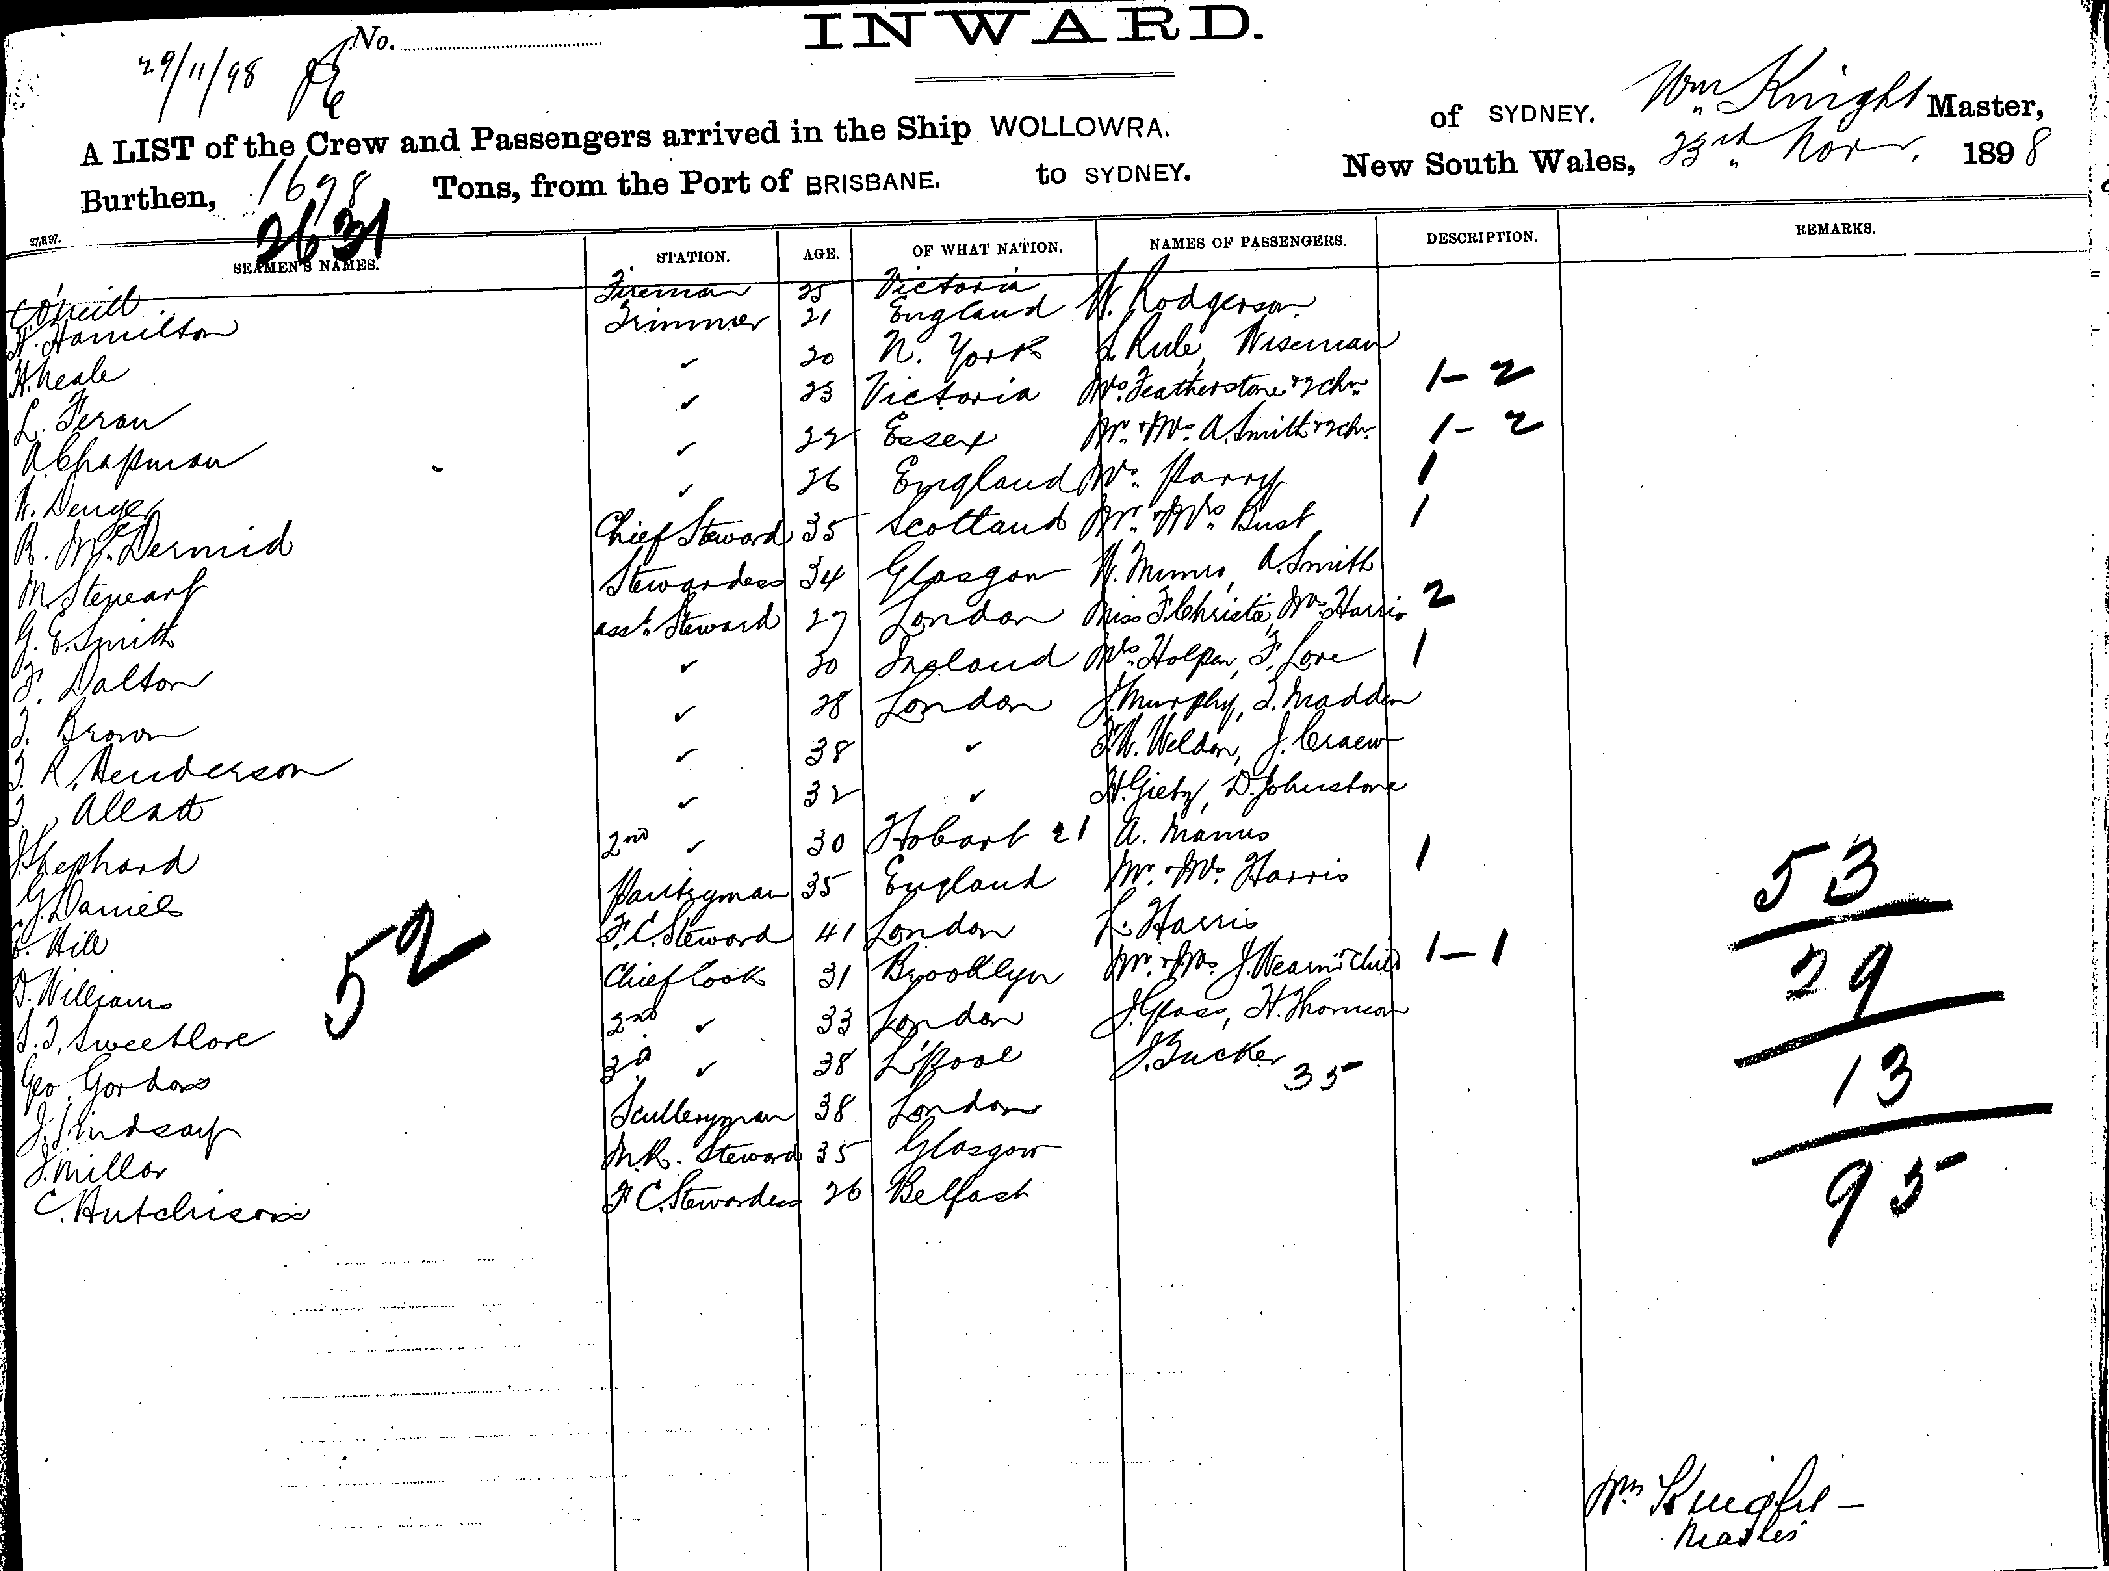 No.
INWARD.
29/11/98
A LIST of the Crew and Passengers arrived in the Ship WOLLOWRA. of SYDNEY. Wm Knight Master,
Burthen, 1698 Tons, from the Port of BRISBANE. to SYDNEY. New South Wales, 23rd Novr. 1898
2631
SEAMEN'S NAMES. STATION. AGE. OF WHAT NATION. NAMES OF PASSENGERS. DESCRIPTION. REMARKS.
C O'Neill Fireman 25 Victoria W. Rodgerson
Hamilton Trimmer 21 England Rule, Wiseman
H. Neale ✓ 20 N. York Mrs. Featherstone & 2 Chn 1-2
L. Feran ✓ 23 Victoria Mr. & Mrs. A. Smith & 2 Chn 1-2
A. Chapman ✓ 22 Essex Mrs. Parry 1
W. ✓ 26 England Mr. & Mrs Bust 1
R. McDermid Chief Steward 35 Scotland W. Munro, A. Smith
M Stewart Stewardess 34 Glasgow Miss F. Christie, Mrs Harris 2
G. E. Smith asst. Steward 27 London Mrs. Holpen, F. Love 1
F. Dalton ✓ 30 England J. Murphy, T. Madden
T. Brown ✓ 28 London F. W. Weldon, J.
T. R. Henderson ✓ 38 ✓ H. D. Johnstone
T. ✓ 32 ✓ A. Manus
J Shephard 2nd ✓ 30 Hobart 21 Mr. & Mrs. Harris 1
G. J. Daniels Pantryman 35 England L. Harris
Hill F. C. Steward 41 London Mr. & Mrs. J. Wearn & Child 1-1
D. Williams Chief Cook 31 Brooklyn J. Glass, H. Thomson
S. T. Sweetlove 2nd ✓ 33 London J. Tucker
Geo. Gordon 3d ✓ 38 L'pool 35
J. Lindsay Sculleryman 38 London
J. Millar M.R. Steward 35 Glasgow
C. Hutchison F C. Stewardess 26 Belfast
52
53
29
13
95
Wm Knight
Master